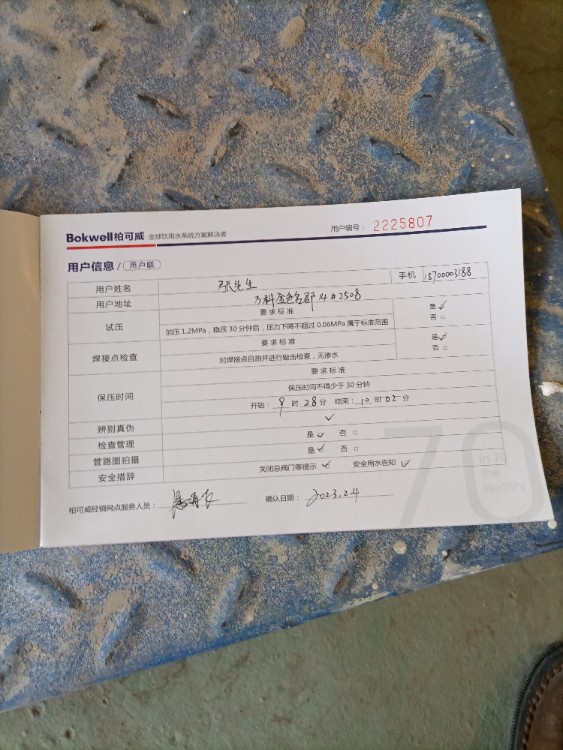 Bokwell柏可威 全球饮用水系统方案解决者 用户编号：2225807
用户信息/用户联
用户姓名 张先生 手机 18700003188
用户地址 万科金色名郡 14#2508
试压 要求标准 是✓
加压1.2MPa，稳压30分钟后，压力下降不超过0.06MPa属于标准范围 否○
焊接点检查 要求标准 是✓
对焊接点目测并进行敲击检查，无渗水 否○
保压时间 要求标准
保压时间不得少于30分钟
开始：9时28分 结束：10时02分
辨别真伪 ✓
检查管理 是✓ 否○
管路图拍摄 是✓ 否○
安全措辞 关闭总阀门等提示✓ 安全用水告知✓
柏可威经销网点服务人员： 确认日期：2023.2.4
70
in 70
the
quality